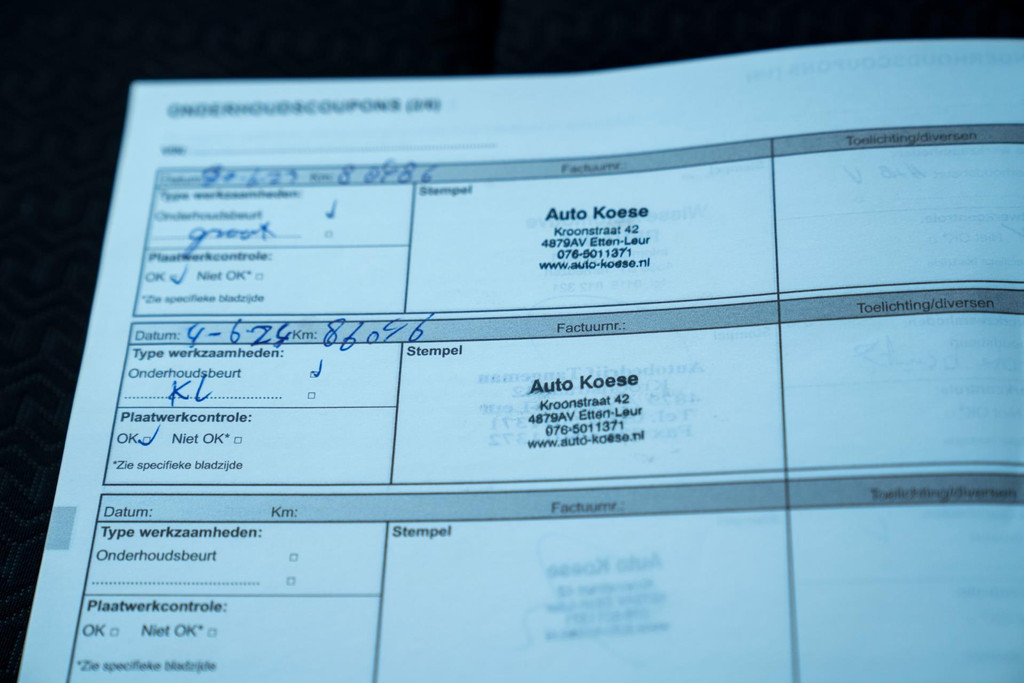 ONDERHOUDSCOUPONS (3/4)
VIN:
Datum: Km: Factuurnr.: Toelichting/diversen
Type werkzaamheden: Stempel
Onderhoudsbeurt
groot
Plaatwerkcontrole:
OK Niet OK*
*Zie specifieke bladzijde
Auto Koese
Kroonstraat 42
4879AV Etten-Leur
076-5011371
www.auto-koese.nl
Datum: 4-6-24 Km: 86046 Factuurnr.: Toelichting/diversen
Type werkzaamheden: Stempel
Onderhoudsbeurt
KL
Plaatwerkcontrole:
OK Niet OK*
*Zie specifieke bladzijde
Auto Koese
Kroonstraat 42
4879AV Etten-Leur
076-5011371
www.auto-koese.nl
Datum: Km: Factuurnr.: Toelichting/diversen
Type werkzaamheden: Stempel
Onderhoudsbeurt
Plaatwerkcontrole:
OK Niet OK*
*Zie specifieke bladzijde